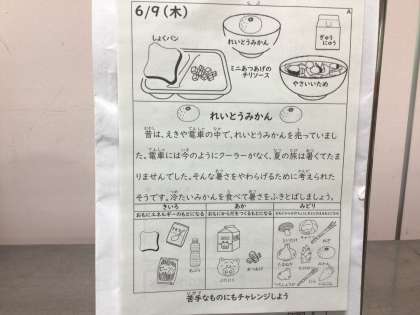 6/9(木)
A
しょくパン
れいとうみかん
ぎゅうにゅう
ミニあつあげの
チリソース
やさいいため
れいとうみかん
昔は、えきや電車の中で、れいとうみかんを売っていまし
た。電車には今のようにクーラーがなく、夏の旅は暑くてた
まりませんでした。そんな暑さをやわらげるために考えられた
そうです。冷たいみかんを食べて暑さをふきとばしましょう。
きいろ
あか
みどり
おもにエネルギーのもとになる
おもにからだをつくるもとになる
苦手なものにもチャレンジしよう